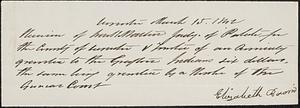 Worcester March 15. 1842
Received of Ira M Barton Judge of Probate for
the County of Worcester & Trustee of an Annuity
granted to the Grafton Indians six dollars
the same being granted by a Resolve of the
General Court
Elizabeth